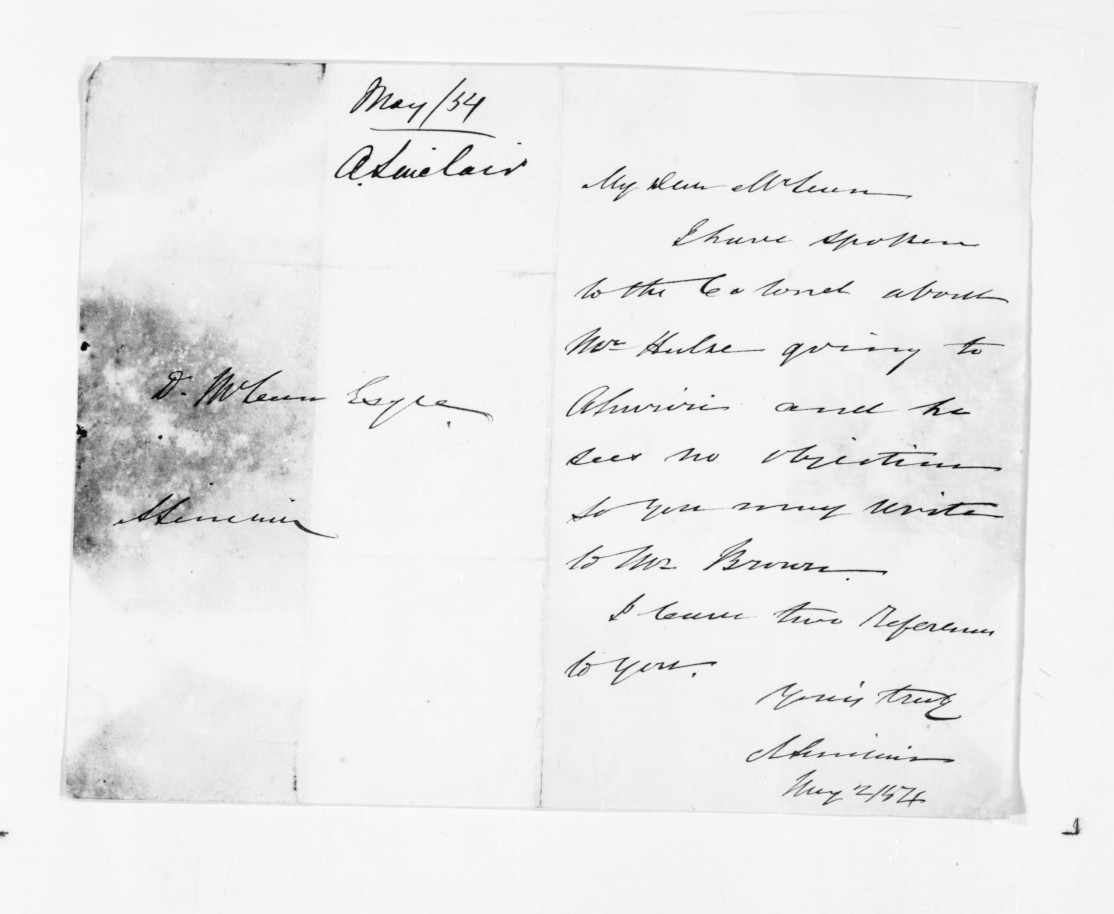 May/54
A. Sinclair
D. McLean Esqre.
A Sinclair
My Dear McLean
I have spoken
to the Colonel about
Mr Hulse going to
Ahuriri and he
sees no objection
so you may write
to Mr Brown.
I leave two References
to you.
Yours truly
A Sinclair
May 2/54